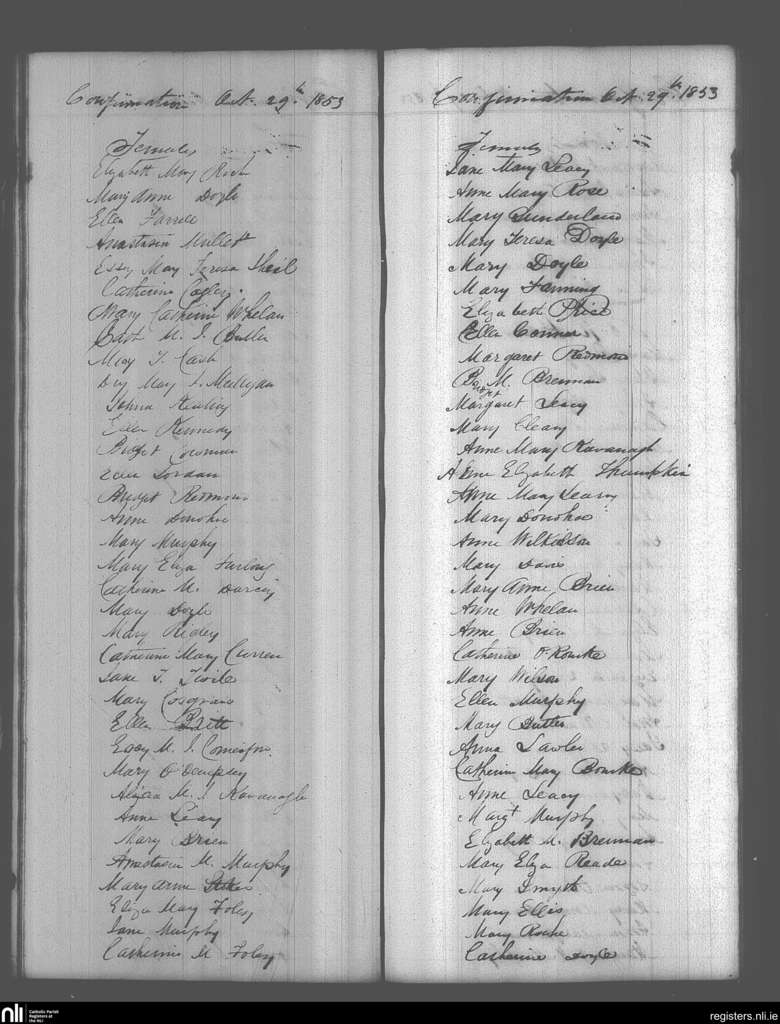 Confirmation Oct. 29th 1853
Females
Elizabeth May Rich
Mary Anne Doyle
Ellen Farrell
Anastasia Mullett
Essy May Teresa Sheil
Catherine
Mary Catherine Whelan
M. J. Butler
Mary T. Cash
May Mulligan
Johna Keating
Ellen Kennedy
Bridget
Ellen Jordan
Bridget Redmond
Anne Donohoe
Mary Murphy
Mary Eliza Furlong
Catherine M. Darcey
Mary Doyle
Mary Ridley
Catherine Mary Curren
Jane T.
Mary Cosgrave
Ellen Brett
Essy M. J. Comerfor
Mary O'Dempsey
Alicia M. J. Kavanagh
Anne Leary
Mary Brien
Anastasia M. Murphy
Mary Anne
Eliza Mary Foley
Jane Murphy
Catherine M Foley
Confirmation Oct. 29th. 1853
Females
Jane Mary Leary
Anne Mary Rose
Mary Sunderland
Mary Teresa Doyle
Mary Doyle
Mary Fanning
Elizabeth Price
Ellen Connor
Margaret Redmond
Bridget M. Brennan
Margaret Leary
Mary Cleary
Anne Mary Kavanagh
Anne Elizabeth Thumpkin
Anne Mary Leary
Mary Donohoe
Anne Wilkisson
Mary Davis
Mary Anne Brien
Anne Whelan
Anne Brien
Catherine O'Rourke
Mary Wilson
Ellen Murphy
Mary Butler
Anna Lawler
Catherine Mary Bourke
Anne Leacy
Margt Murphy
Elizabeth M. Brennan
Mary Eliza Reade
Mary Smyth
Mary Ellis
Mary Roche
Catherine Doyle
nli Catholic Parish
Registers at
the NLI
registers.nli.ie